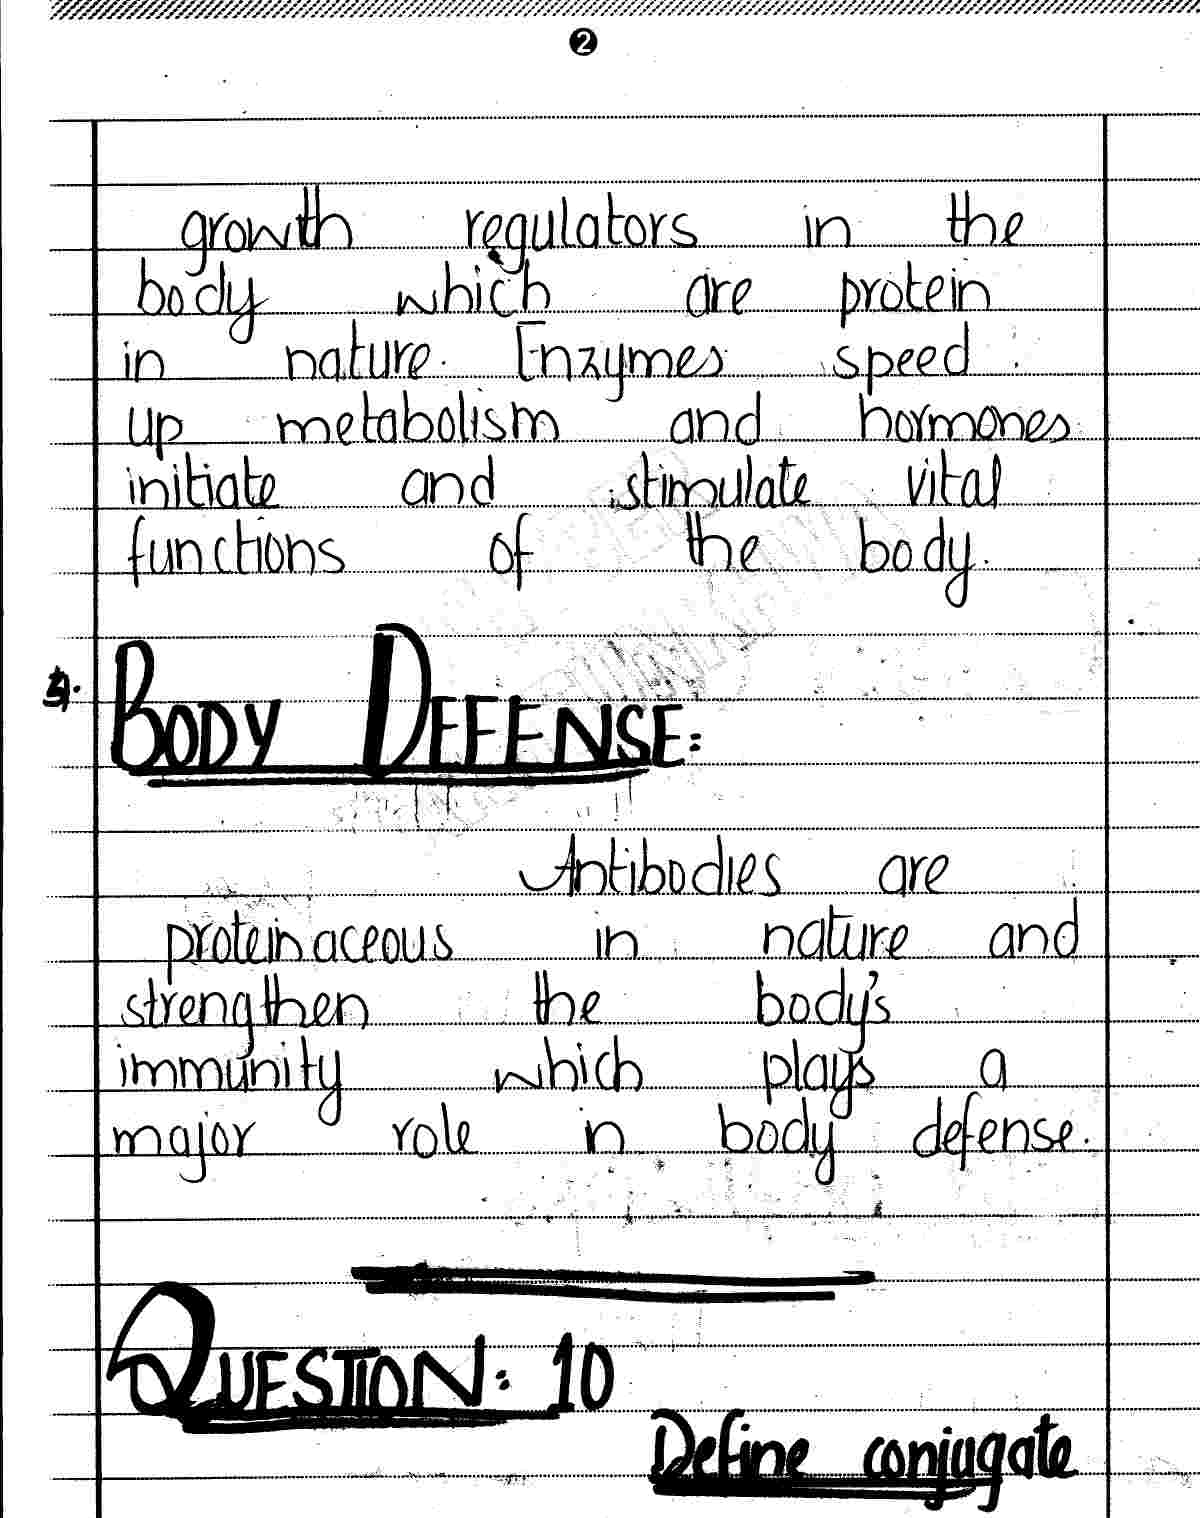 2
growth regulators in the
body which are protein
in nature. Enzymes speed
up metabolism and hormones
initiate and stimulate vital
functions of the body.
BODY DEFENSE:
Antibodies are
proteinaceous in nature and
strengthen the body's
immunity which plays a
major role in body defense.
QUESTION: 10
Define conjugate